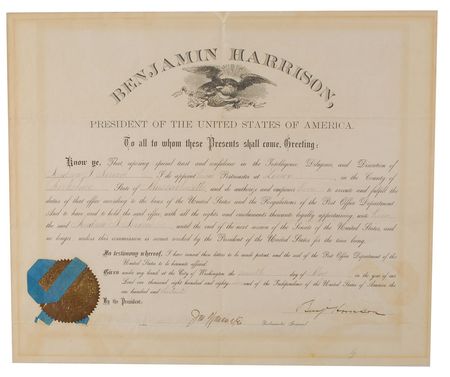 BENJAMIN HARRISON,
PRESIDENT OF THE UNITED STATES OF AMERICA.
To all to whom these Presents shall come, Greeting:
Know ye, That reposing special trust and confidence in the Intelligence, Diligence, and Discretion of
I do appoint him Postmaster at in the County of
State of Massachusetts and do authorize and empower him to execute and fulfill the
duties of that office according to the laws of the United States and the Regulations of the Post Office Department
And to have and to hold the said office, with all the rights and emoluments thereunto legally appertaining, unto him
the said until the end of the next session of the Senate of the United States, and
no longer, unless this commission is sooner revoked by the President of the United States for the time being.
In testimony whereof, I have caused these letters to be made patent, and the seal of the Post Office Department of the
United States to be hereunto affixed.
Given under my hand at the City of Washington the day of in the year of our
Lord one thousand eight hundred and eighty- and of the Independence of the United States of America the
one hundred and
By the President:
Benj Harrison
Postmaster General